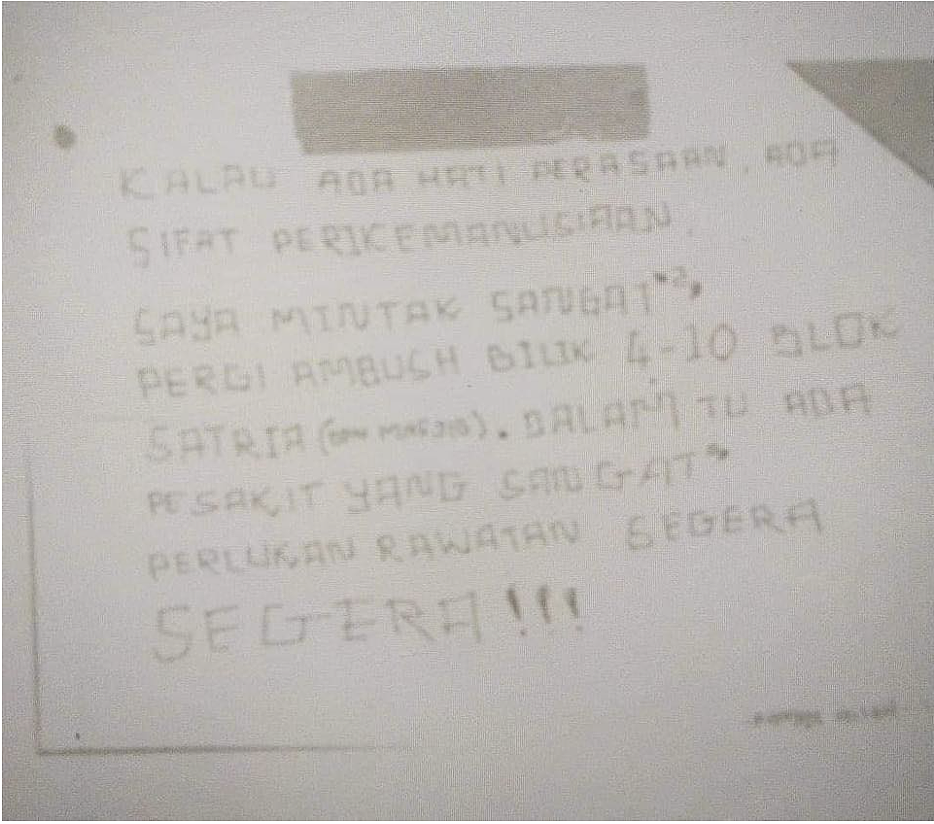 KALAU ADA HATI PERASAAN, ADA
SIFAT PERIKEMANUSIAAN.
SAYA MINTAK SANGAT"2,
PERGI AMBUSH BILIK 4-10 BLOK
SATRIA. DALAM TU ADA
PESAKIT YANG SANGAT"
PERLUKAN RAWATAN SEGERA
SEGERA!!!